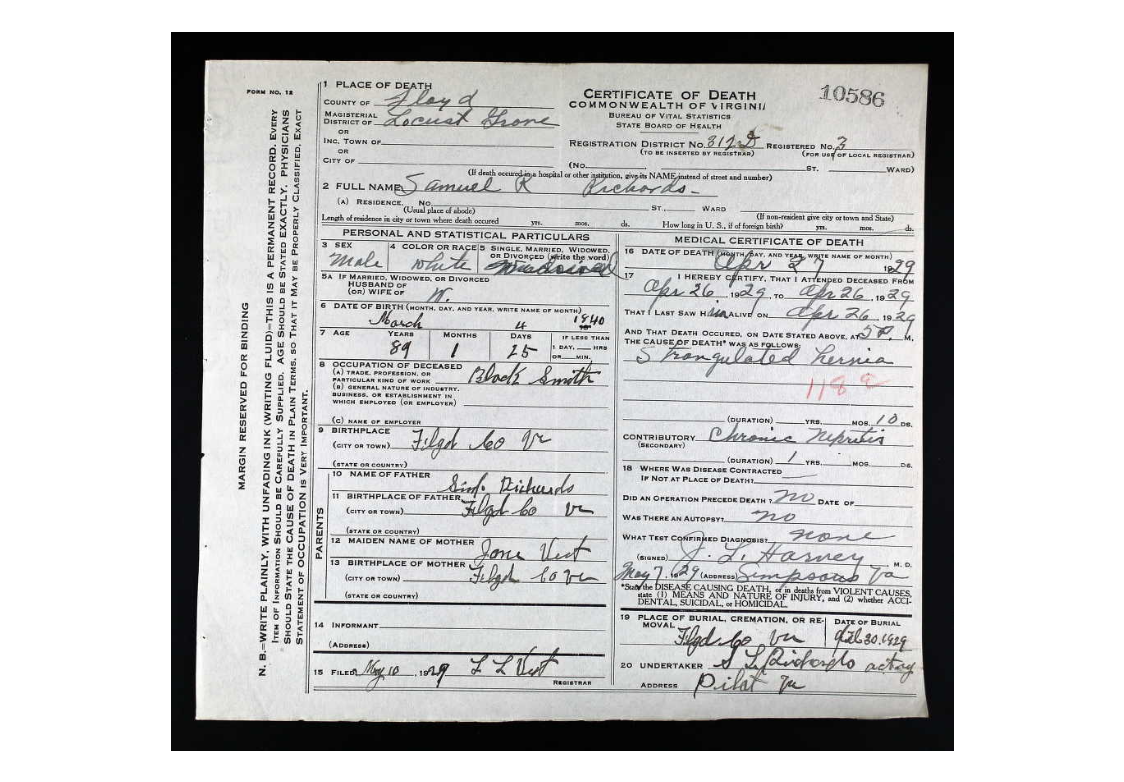 FORM NO. 12
MARGIN RESERVED FOR BINDING
N. B.=WRITE PLAINLY, WITH UNFADING INK (WRITING FLUID)=THIS IS A PERMANENT RECORD. EVERY
ITEM OF INFORMATION SHOULD BE CAREFULLY SUPPLIED. AGE SHOULD BE STATED EXACTLY. PHYSICIANS
SHOULD STATE THE CAUSE OF DEATH IN PLAIN TERMS, SO THAT IT MAY BE PROPERLY CLASSIFIED. EXACT
STATEMENT OF OCCUPATION IS VERY IMPORTANT.
1 PLACE OF DEATH
COUNTY OF Floyd
MAGISTERIAL
DISTRICT OF Locust Grove
OR
INC. TOWN OF
OR
CITY OF
CERTIFICATE OF DEATH
COMMONWEALTH OF VIRGINIA
BUREAU OF VITAL STATISTICS
STATE BOARD OF HEALTH
10586
REGISTRATION DISTRICT NO. 312 D REGISTERED NO. 3
(TO BE INSERTED BY REGISTRAR) (FOR USE OF LOCAL REGISTRAR)
(NO. ST. WARD)
(If death occured in a hospital or other institution, give its NAME instead of street and number)
2 FULL NAME Samuel R Richards
(A) RESIDENCE. NO. ST., WARD
(Usual place of abode) (If non-resident give city or town and State)
Length of residence in city or town where death occured yrs. mos. ds. How long in U. S., if of foreign birth? yrs. mos. ds.
PERSONAL AND STATISTICAL PARTICULARS
3 SEX 4 COLOR OR RACE 5 SINGLE, MARRIED, WIDOWED, OR DIVORCED (write the word)
Male White
5A IF MARRIED, WIDOWED, OR DIVORCED
HUSBAND OF
(OR) WIFE OF W.
6 DATE OF BIRTH (MONTH, DAY, AND YEAR, WRITE NAME OF MONTH)
March 4 1840
7 AGE YEARS MONTHS DAYS IF LESS THAN
89 1 25 1 DAY, HRS
OR MIN.
8 OCCUPATION OF DECEASED
(A) TRADE, PROFESSION, OR
PARTICULAR KIND OF WORK Black Smith
(B) GENERAL NATURE OF INDUSTRY,
BUSINESS, OR ESTABLISHMENT IN
WHICH EMPLOYED (OR EMPLOYER)
(C) NAME OF EMPLOYER
9 BIRTHPLACE
(CITY OR TOWN) Floyd Co Va
(STATE OR COUNTRY)
PARENTS
10 NAME OF FATHER
Richards
11 BIRTHPLACE OF FATHER
(CITY OR TOWN) Floyd Co Va
(STATE OR COUNTRY)
12 MAIDEN NAME OF MOTHER Jane Vest
13 BIRTHPLACE OF MOTHER
(CITY OR TOWN) Floyd Co Va
(STATE OR COUNTRY)
14 INFORMANT
(Address)
15 FILED May 10, 1929 L L Vest
REGISTRAR
MEDICAL CERTIFICATE OF DEATH
16 DATE OF DEATH (MONTH, DAY, AND YEAR, WRITE NAME OF MONTH)
Apr 27 1929
17 I HEREBY CERTIFY, THAT I ATTENDED DECEASED FROM
Apr 26, 1929, TO Apr 26, 1929
THAT I LAST SAW HIM ALIVE ON Apr 26, 1929
AND THAT DEATH OCCURED, ON DATE STATED ABOVE, AT 5 P. M.
THE CAUSE OF DEATH* WAS AS FOLLOWS:
Strangulated hernia
118
(DURATION) YRS. MOS. 10 DS.
CONTRIBUTORY Chronic Nepritis
(SECONDARY)
(DURATION) 1 YRS. MOS. DS.
18 WHERE WAS DISEASE CONTRACTED
IF NOT AT PLACE OF DEATH?
DID AN OPERATION PRECEDE DEATH? no DATE OF
WAS THERE AN AUTOPSY? no
WHAT TEST CONFIRMED DIAGNOSIS? none
(SIGNED) J. L. Harvey M. D.
May 7, 1929 (ADDRESS) Simpsons Va
*State the DISEASE CAUSING DEATH, or in deaths from VIOLENT CAUSES,
state (1) MEANS AND NATURE OF INJURY, and (2) whether ACCI-
DENTAL, SUICIDAL, or HOMICIDAL.
19 PLACE OF BURIAL, CREMATION, OR RE- DATE OF BURIAL
MOVAL Floyd Co Va 30, 1929
20 UNDERTAKER S L Richards acting
ADDRESS Pilot Va